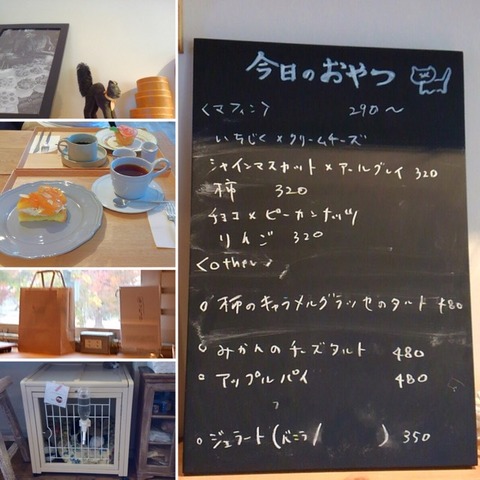 今日のおやつ
<マフィン> 290〜
いちじく×クリームチーズ
シャインマスカット×アールグレイ 320
柿 320
チョコ×ピーカンナッツ
りんご 320
<other>
○ 柿のキャラメルグラッセのタルト 480
○ みかんのチーズタルト 480
○ アップルパイ 480
○ ジェラート(バニラ/ ) 350